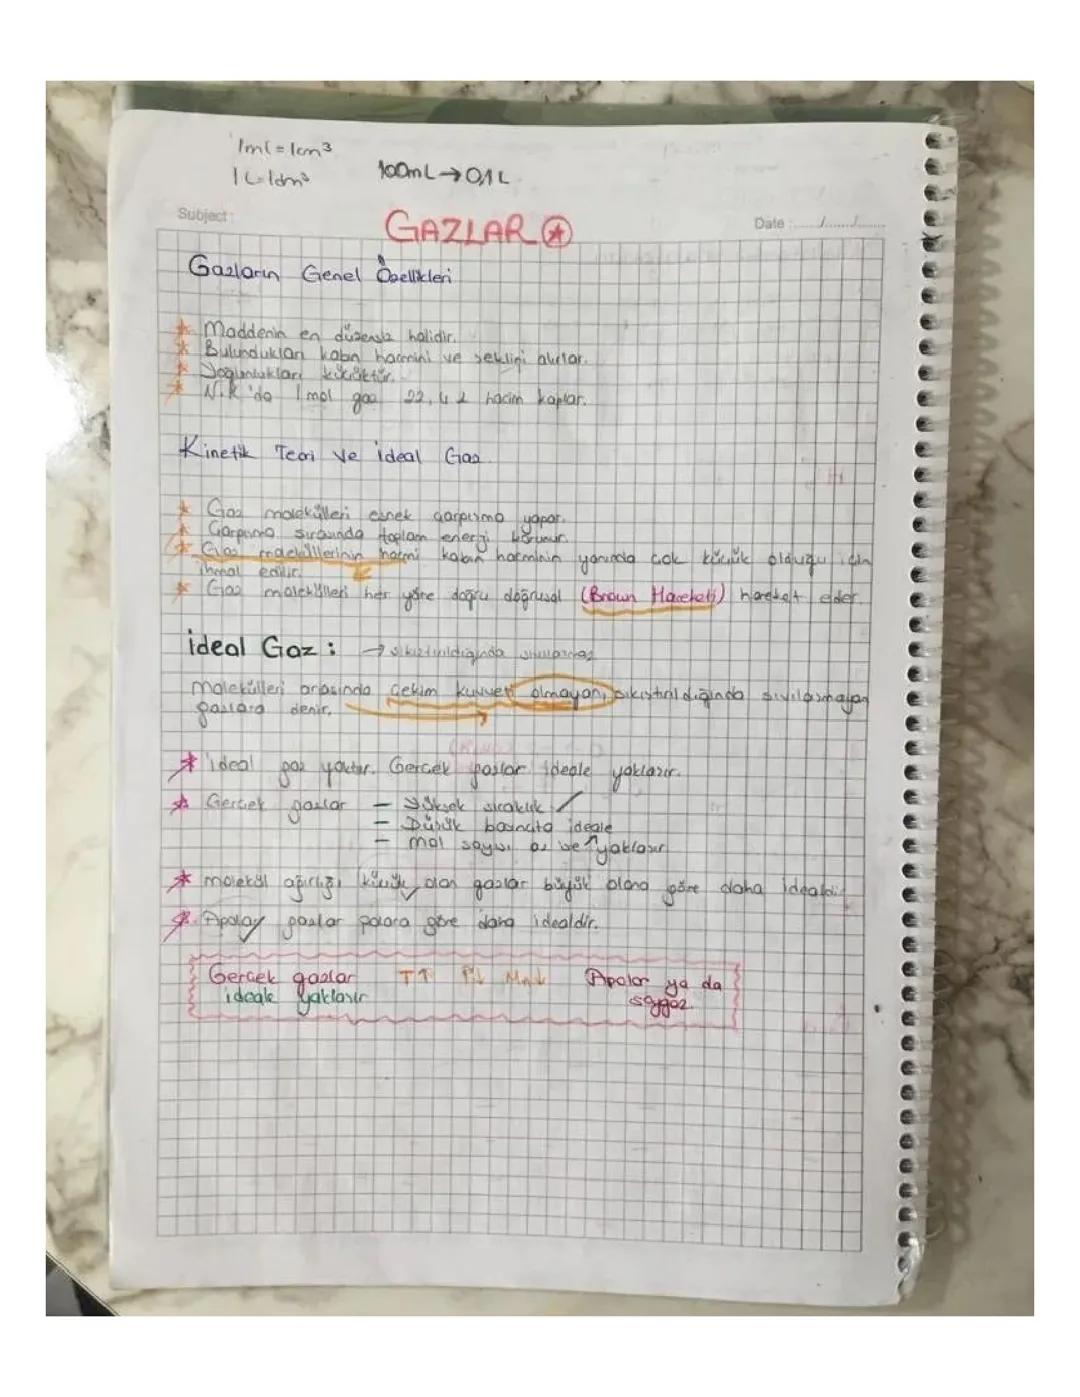 1ml = 1cm³
1L=1dm³
100mL→0,1L
Subject:
Date :....../......../........
GAZLAR
Gazların Genel Özellikleri
Maddenin en düzensiz halidir.
Bulundukları kabın hacmini ve şeklini alırlar.
Yoğunlukları küçüktür.
N.K'da 1 mol gaz 22,4 L hacim kaplar.
Kinetik Teori ve ideal Gaz
Gaz molekülleri esnek çarpışma yapar.
Çarpışma sırasında toplam enerji korunur.
Gaz moleküllerinin hacmi kabın hacminin yanında çok küçük olduğu için
ihmal edilir.
Gaz molekülleri her yöne doğru doğrusal (Brown Hareketi) hareket eder.
ideal Gaz : → sıkıştırıldığında sıvılaşmaz
Molekülleri arasında çekim kuvveti olmayan, sıkıştırıldığında sıvılaşmayan
gazlara denir.
ideal gaz yoktur. Gerçek gazlar ideale yaklaşır.
Gerçek gazlar — Yüksek sıcaklık
— Düşük basınçta ideale
— mol sayısı az ve yaklaşır
molekül ağırlığı küçük olan gazlar büyük olana göre daha idealdir
Apolar gazlar polara göre daha idealdir.
Gerçek gazlar T↑ P↓ MA↓ Apolar ya da
ideale yaklaşır soygaz